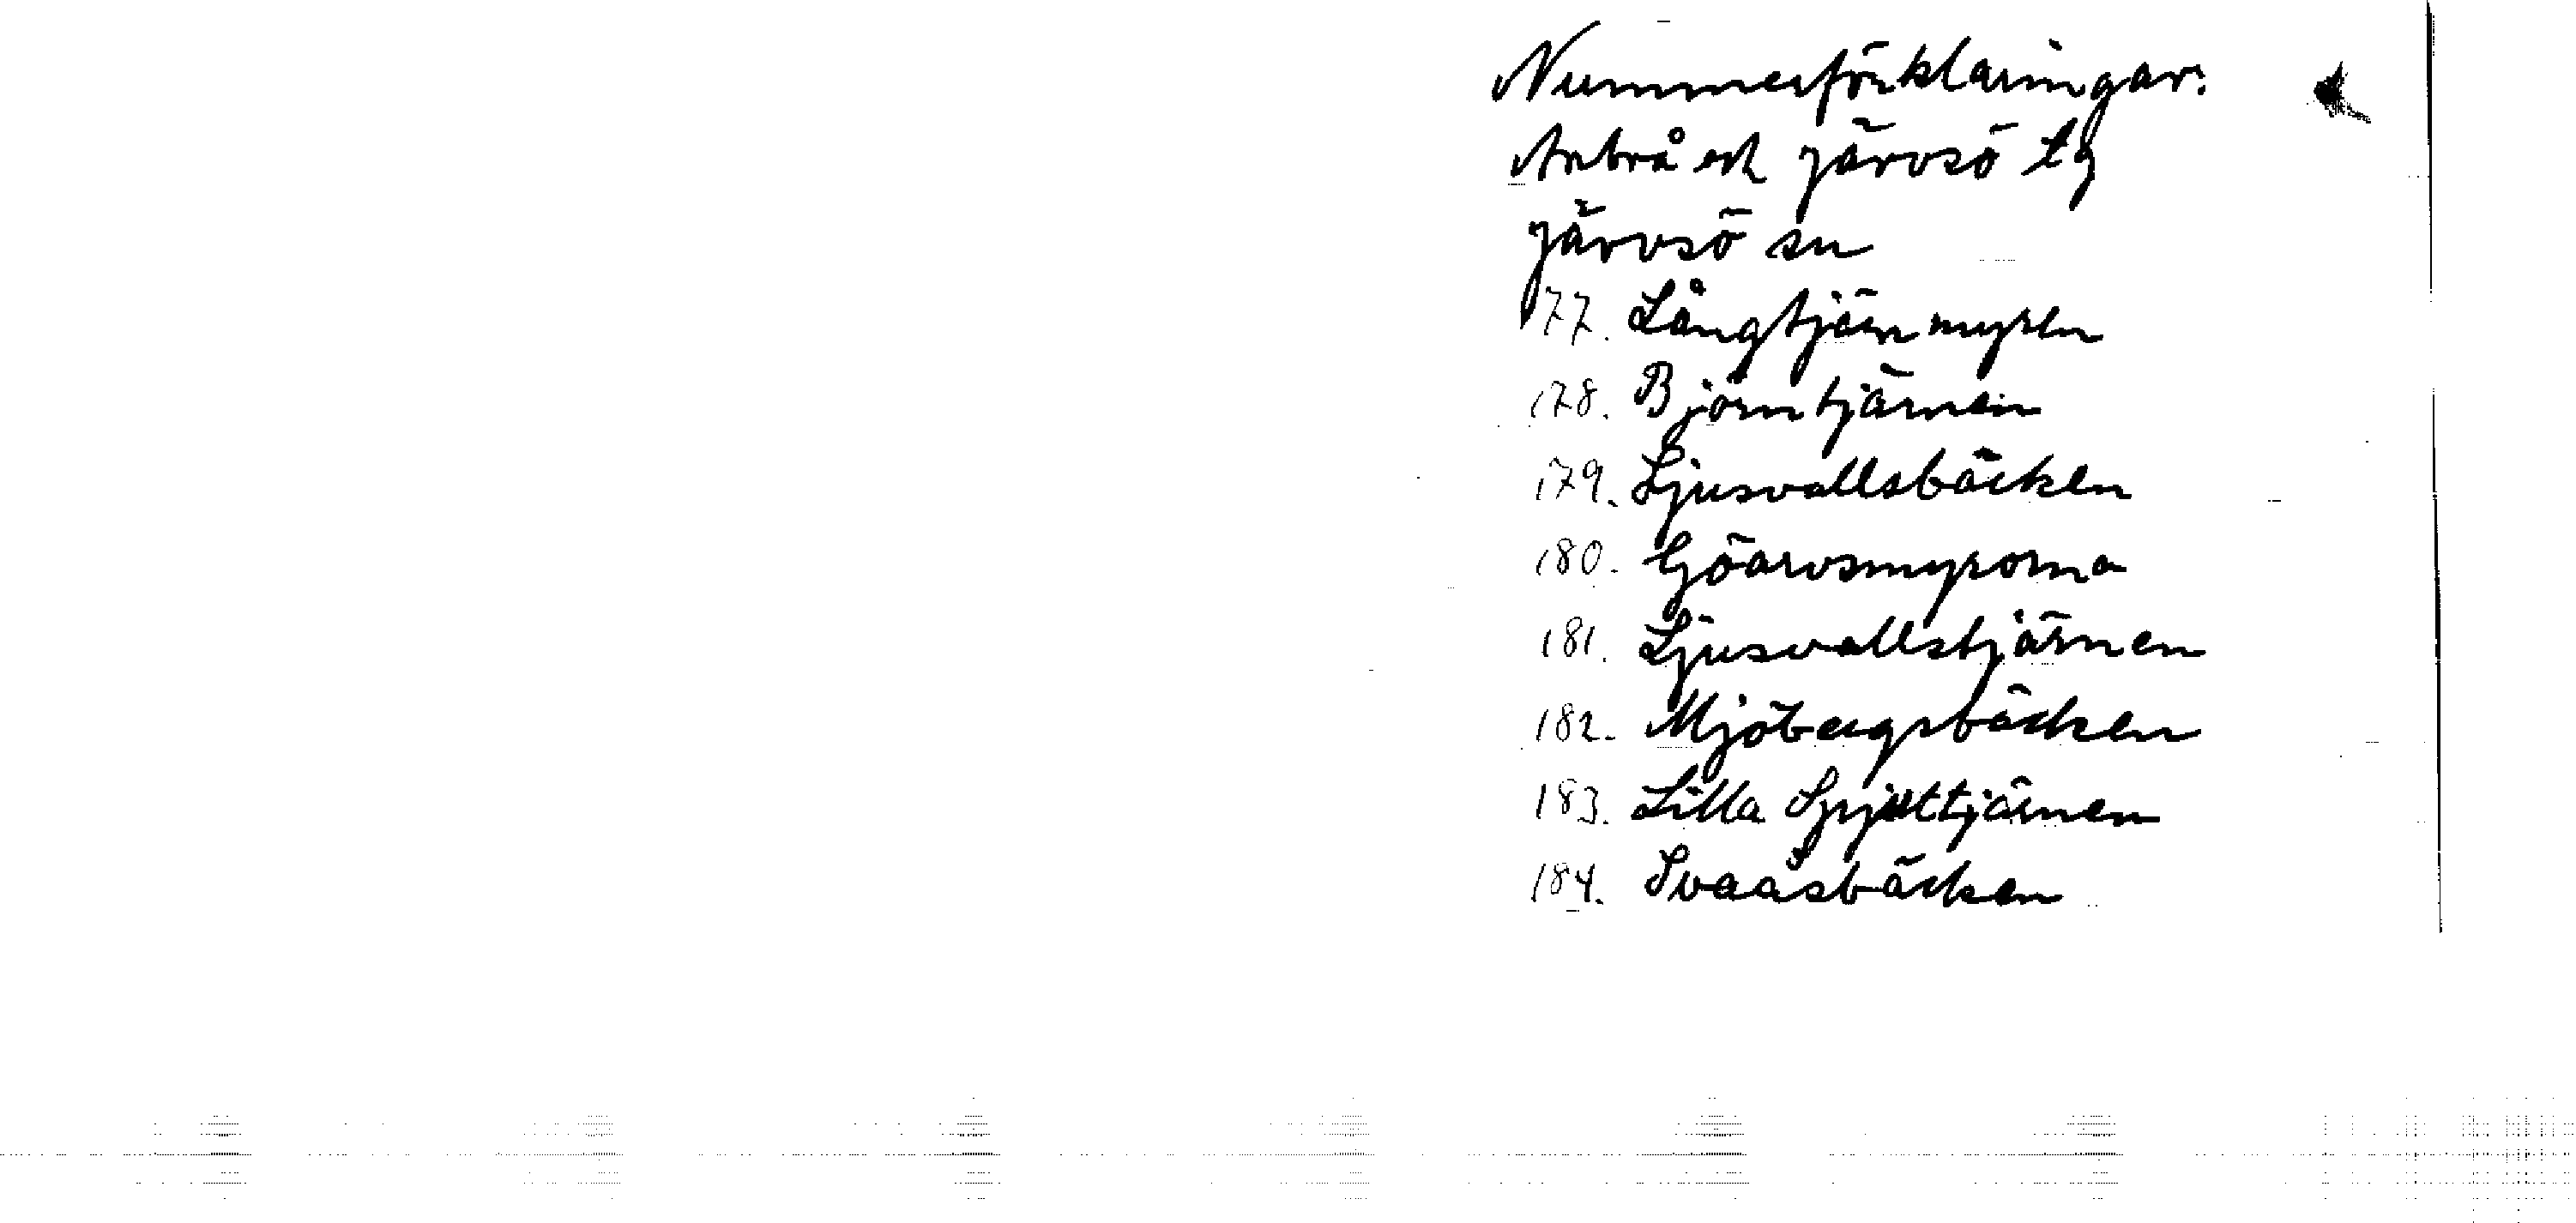 Nummerförklaringar:
Arbrå och Järvsö tg
Järvsö sn
177. Långtjärnmyren
178. Björntjärnen
179. Ljusvallsbäcken
180. Göarvsmyrorna
181. Ljusvallstjärnen
182. Mjöbergsbäcken
183. Lilla Spjuttjärnen
184. Svaåsbäcken